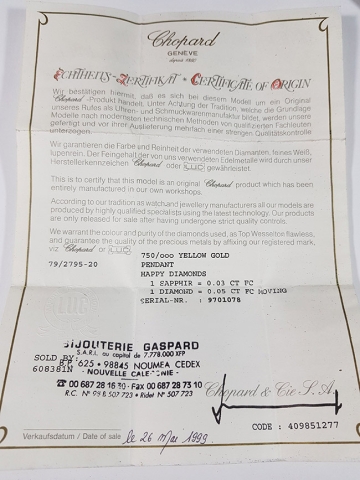 Chopard
GENÈVE
depuis 1860
ECHTHEITS-ZERTIFIKAT • CERTIFICATE OF ORIGIN
Wir bestätigen hiermit, daß es sich bei diesem Model um ein Original
Chopard-Produkt handelt. Unter Achtung der Tradition, welche die Grundlage
unseres Rufes als Uhren- und Schmuckwarenmanufaktur bildet, werden unsere
Modelle nach modernsten technischen Methoden von qualifizierten Fachleuten
gefertigt und vor ihrer Auslieferung mehrfach einer strengen Qualitätskontrolle
unterzogen.
Wir garantieren die Farbe und Reinheit der verwandten Diamanten, feines Weiß,
lupenrein. Der Feingehalt der von uns verwendeten Edelmetalle wird durch unser
Herstellerkennzeichen Chopard oder gewährleistet.
This is to certify that this model is an original Chopard product which has been
entirely manufactured in our own workshops.
According to our tradition as watch and jewellery manufacturers all our models are
produced by highly qualified specialists using the latest technology. Our products
are only released for sale after having undergone strict quality controls.
We warrant the colour and purity of the diamonds used, as Top Wesselton flawless,
and guarantee the quality of the precious metals by affixing our registered mark,
viz Chopard or
750/ooo YELLOW GOLD
79/2795-20 PENDANT
HAPPY DIAMONDS
1 SAPPHIR = 0.03 CT FC
1 DIAMOND = 0.05 CT FC MOVING
SERIAL-NR. : 9701078
BIJOUTERIE GASPARD
S.A.R.L. au capital de 7.778.000 XFP
SOLD BY: B.P. 625 • 98845 NOUMEA CEDEX
608381N - NOUVELLE CALEDONIE -
☎ 00 687 28 16 30 - Fax 00 687 28 73 10
R.C. N° 98 B 507 723 • Ridet N° 507 723
Chopard & Cie S.A.
CODE : 409851277
Verkaufsdatum / Date of sale le 26 Mai 1999